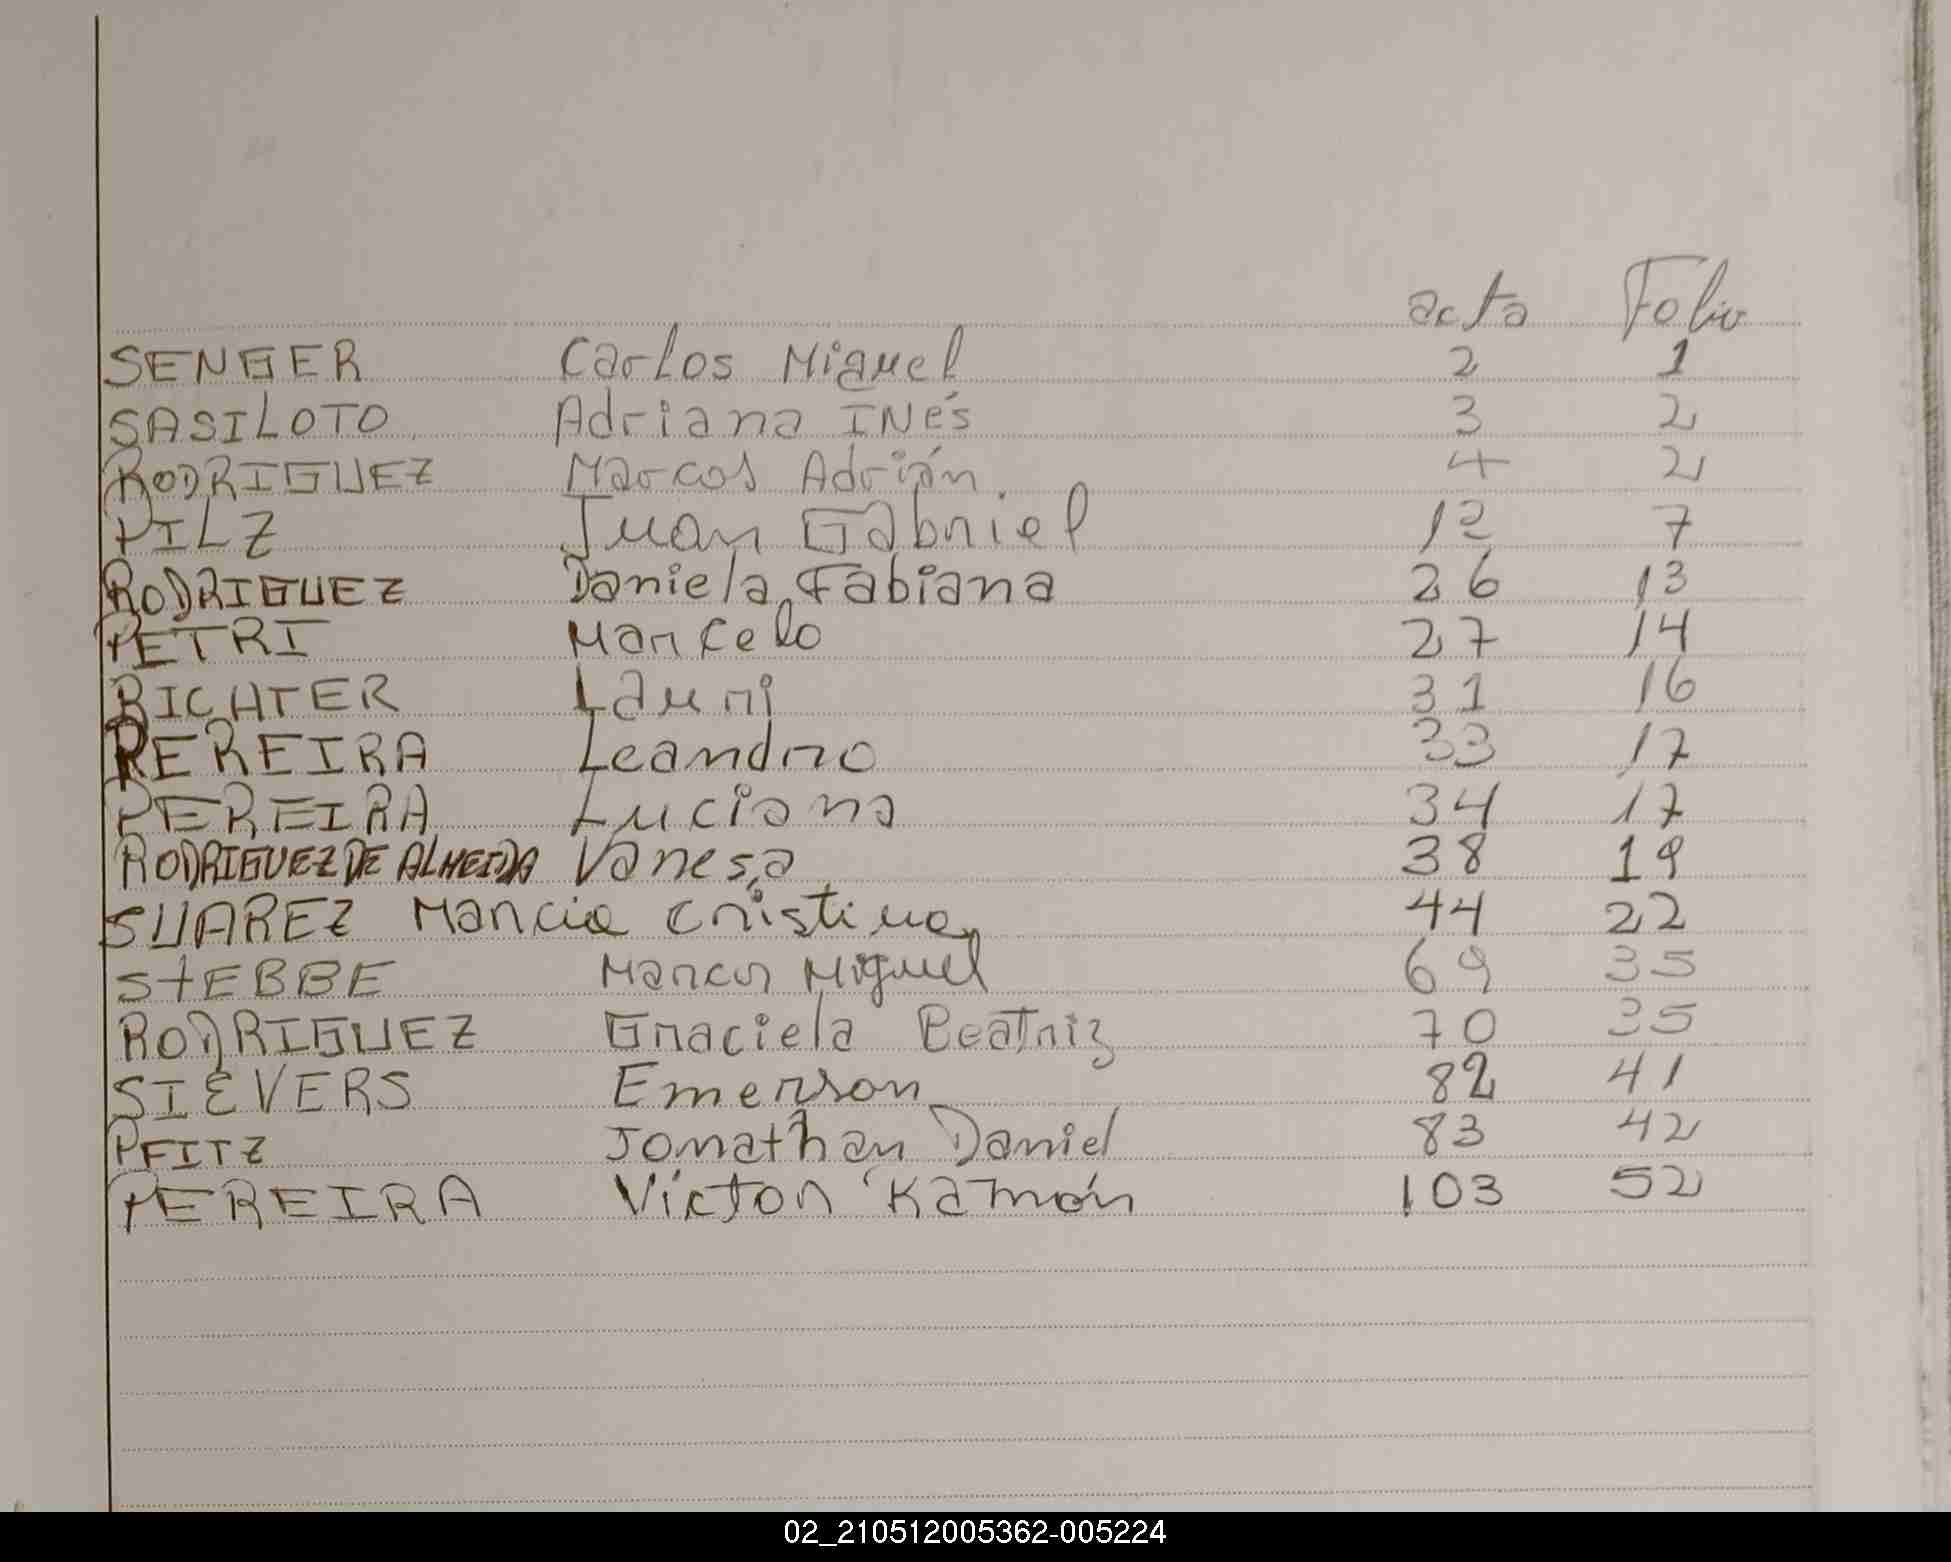 acta Folio
SENGER Carlos Miguel 2 1
SASILOTO Adriana INés 3 2
RODRIGUEZ Marcos Adrián. 4 2
PILZ Juan Gabriel 12 7
RODRIGUEZ Daniela Fabiana 26 13
PETRI Marcelo 27 14
RICHTER Lauri 31 16
PEREIRA Leandro 33 17
PEREIRA Luciana 34 17
RODRIGUEZ DE ALMEIDA Vanesa 38 19
SUAREZ Marcia Cristina 44 22
StEBBE Marcos Miguel 69 35
RODRIGUEZ Graciela Beatriz 70 35
SIEVERS Emerson 82 41
PFITZ Jonathan Daniel 83 42
PEREIRA Victor Ramón 103 52
02_210512005362-005224